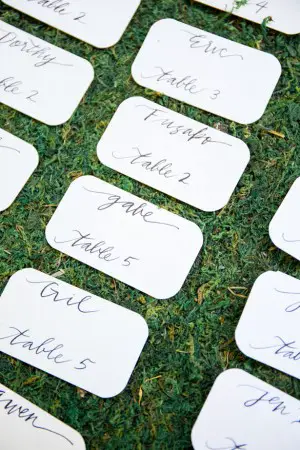 table 2
4
Dorthy
table 2
Eric
table 3
Fusako
table 2
gabe
table 5
Gil
table 5
wen
table
jen
tab